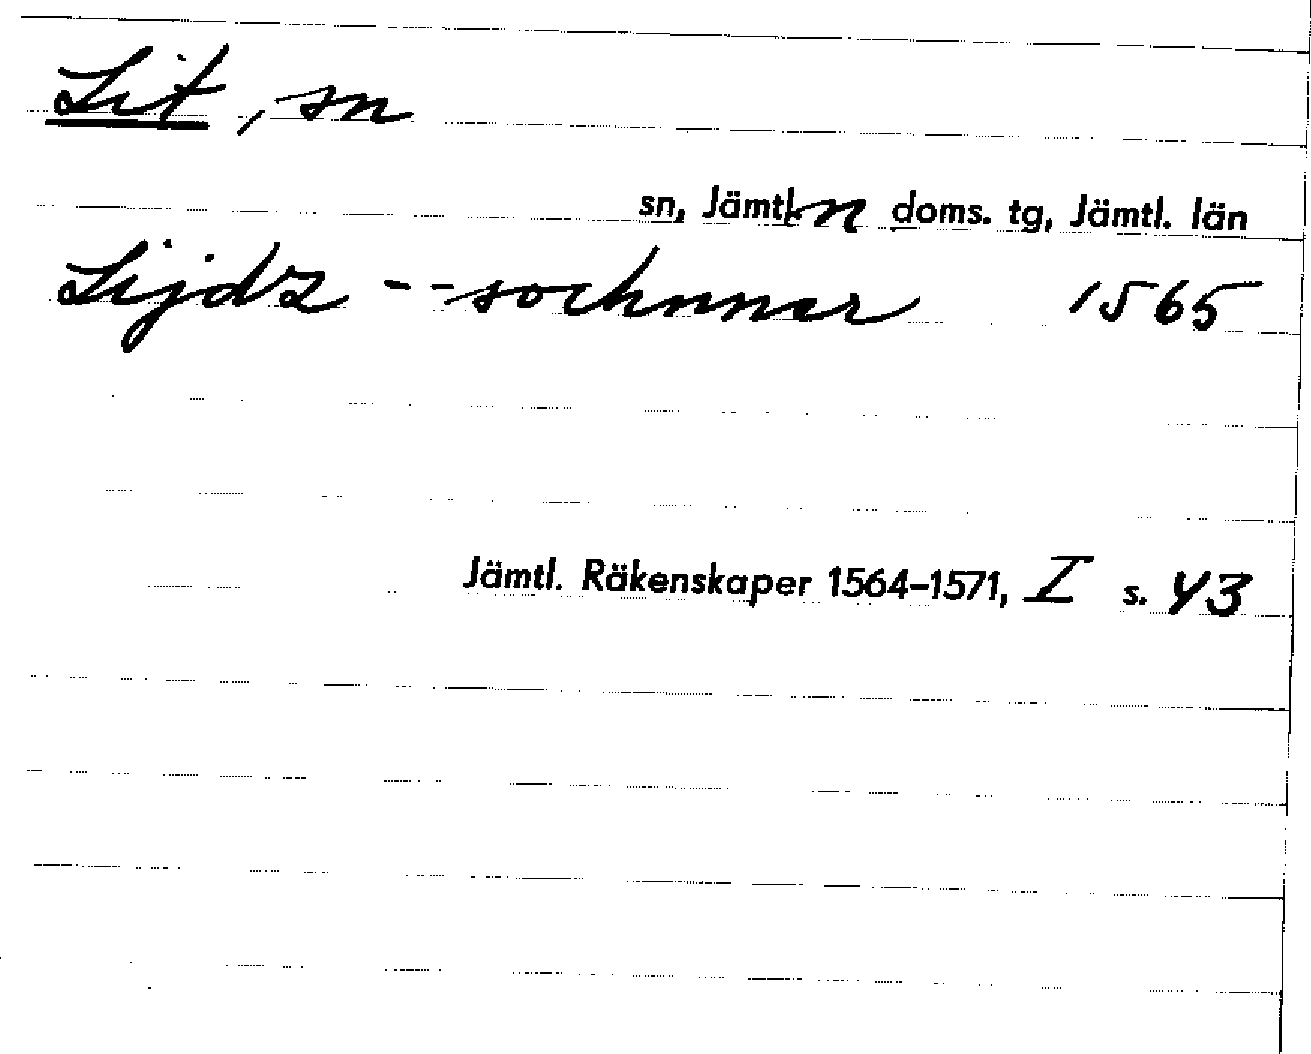 Lit, sn
sn, Jämtl. n doms. tg, Jämtl. län
Lijdz -- sochnnar 1565
Jämtl. Räkenskaper 1564-1571, I s. 43